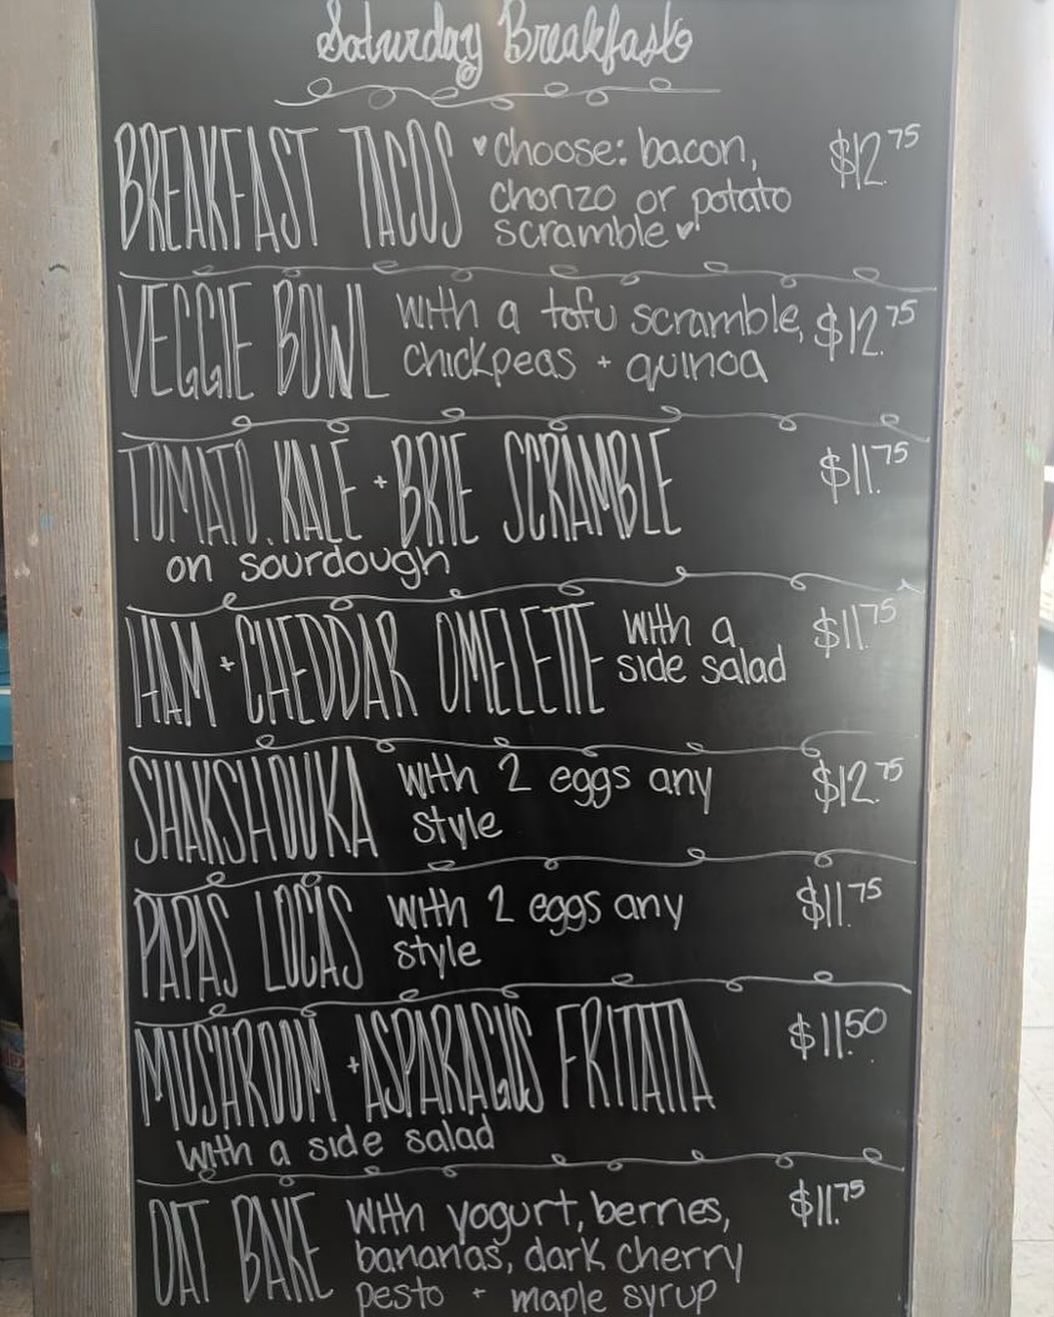 Saturday Breakfast
BREAKFAST TACOS ♥ Choose: bacon, $12.75
chorizo or potato
scramble ♥
VEGGIE BOWL with a tofu scramble, $12.75
chickpeas + quinoa
TOMATO, KALE + BRIE SCRAMBLE $11.75
on sourdough
HAM + CHEDDAR OMELETTE with a $11.75
side salad
SHAKSHOUKA with 2 eggs any $12.75
style
PAPAS LOCAS with 2 eggs any $11.75
style
MUSHROOM + ASPARAGUS FRITATTA $11.50
with a side salad
OAT BAKE with yogurt, berries, $11.75
bananas, dark cherry
pesto + maple syrup